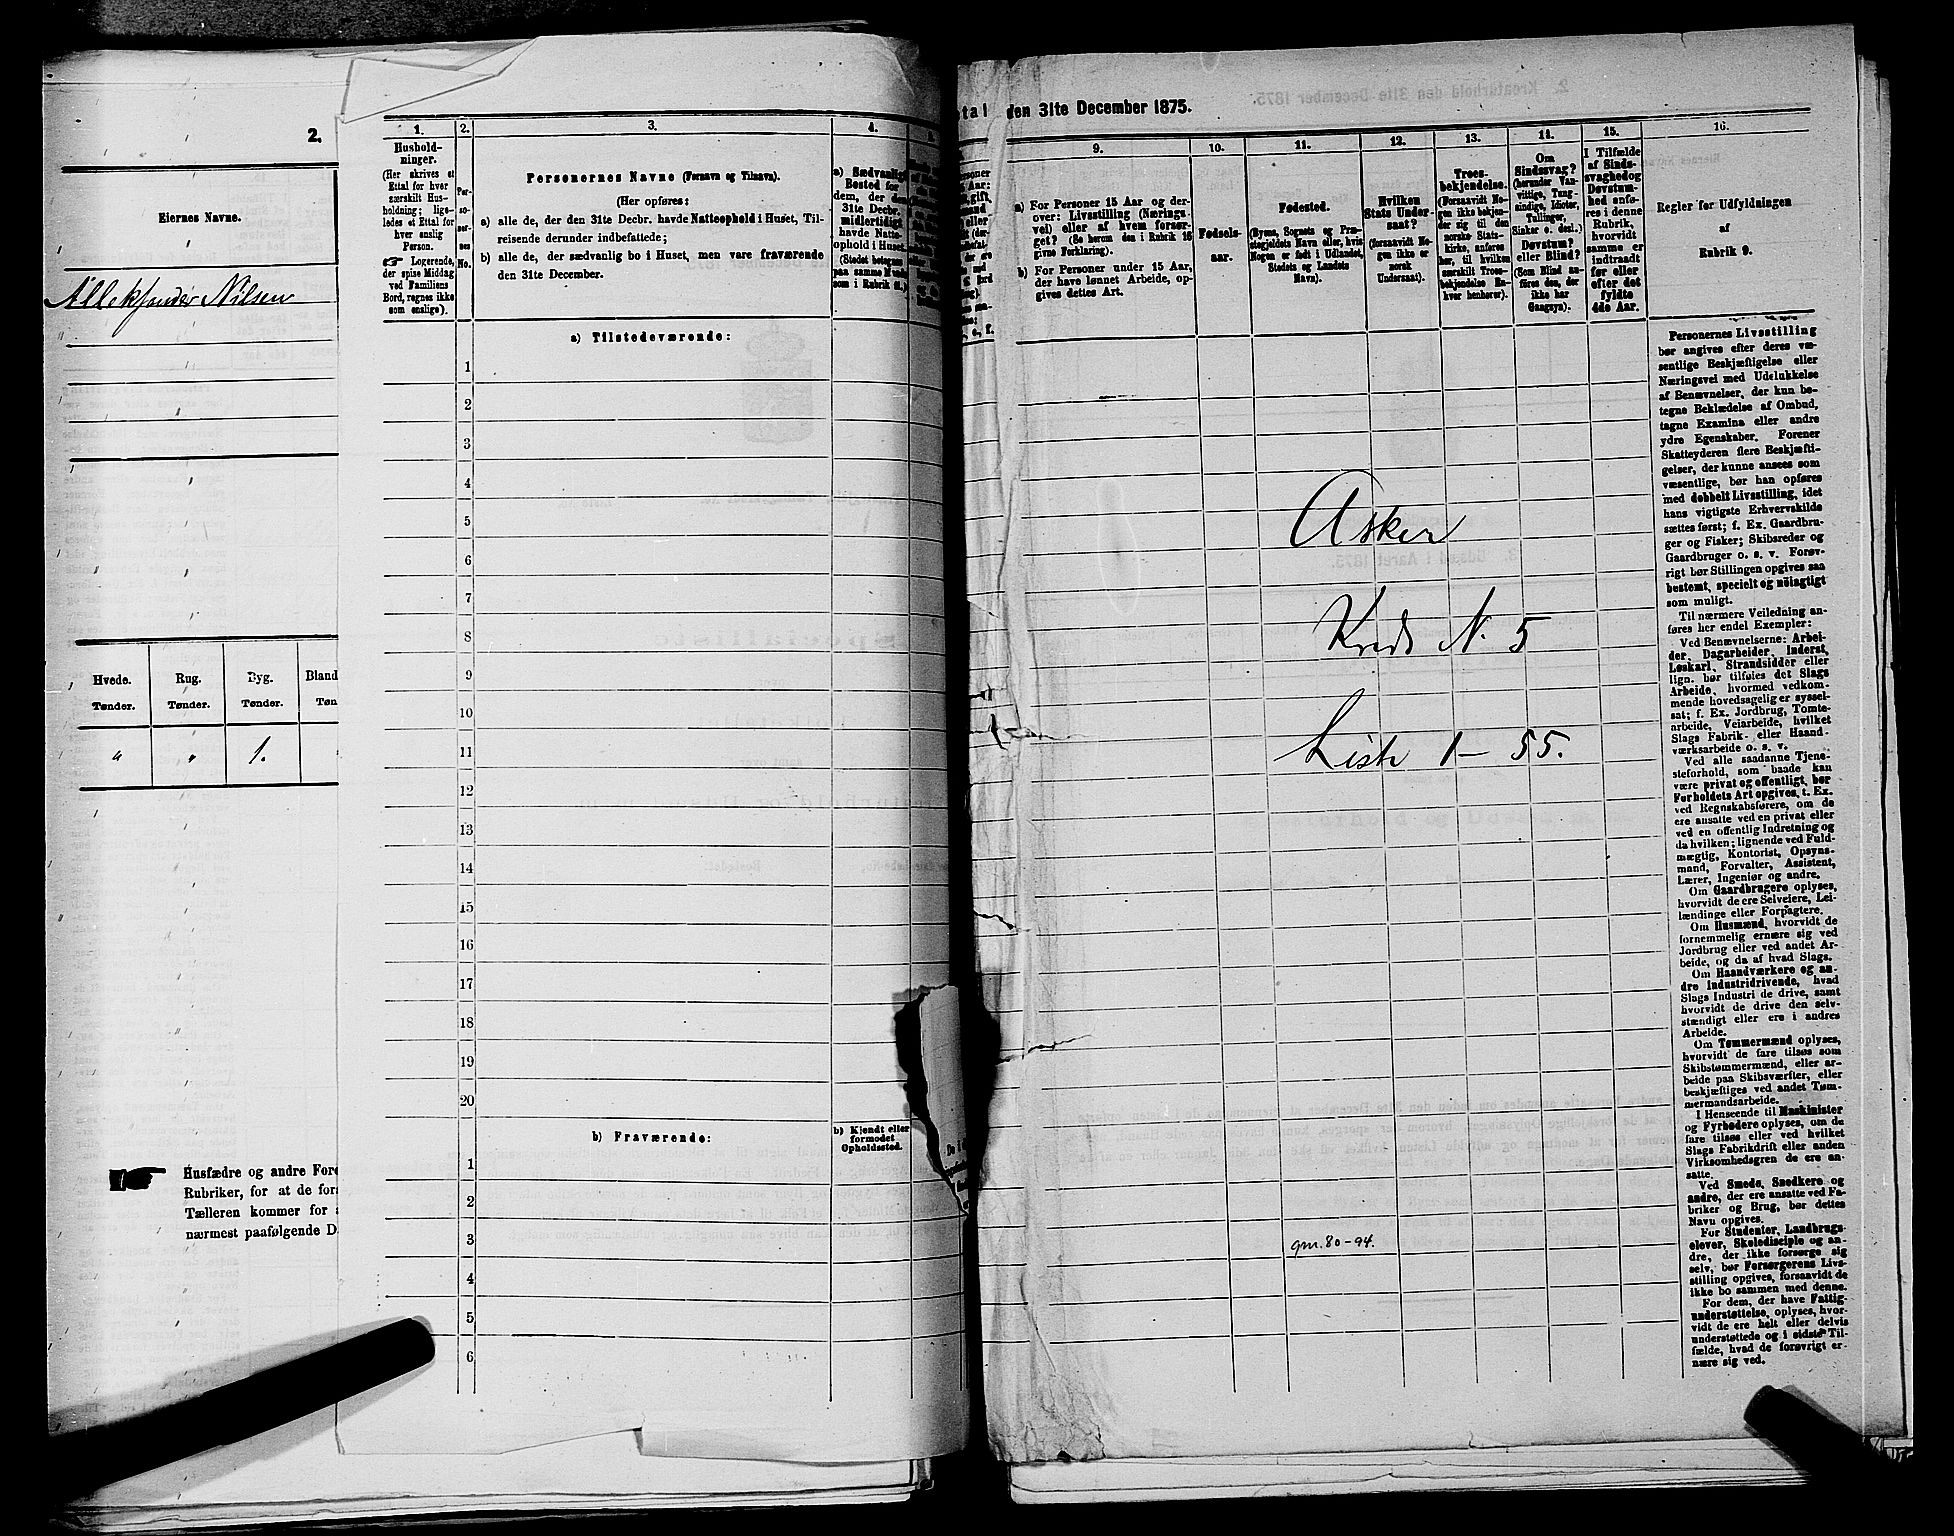 2.
Eiernes Navne.
Alleksander Nilsen
Hvede. Rug. Byg. Bland
Tønder. Tønder. Tønder. Tøn
" " 1.
Husfædre og andre Fore
Rubriker, for at de fors
Tælleren kommer for a
nærmest paafølgende D
1. 2. 3. 4.
Hushold-
ninger.
(Her skrives et
Ettal for hver
særskilt Hus-
holdning; lige-
ledes et Ettal for
hver enslig
Person.
Logerende,
der spise Middag
ved Familiens
Bord, regnes ikke
som enslige).
Per-
so-
ner-
nes
No.
Personernes Navne (Fornavn og Tilnavn).
(Her opføres:
a) alle de, der den 31te Decbr. havde Natteophold i Huset, Til-
reisende derunder indbefattede;
b) alle de, der sædvanlig bo i Huset, men vare fraværende
den 31te December.
a) Sædvanligt
Bosted for
dem, der den
31te Decbr.
midlertidigt
havde Natte-
ophold i Huset.
(Stedet betegnes
paa samme Maade
som i Rubrik 11.)
a) Tilstedeværende:
1
2
3
4
5
6
7
8
9
10
11
12
13
14
15
16
17
18
19
20
b) Fraværende:
b) Kjendt eller
formodet
Opholdssted.
1
2
3
4
5
6
tal den 31te December 1875.
9. 10. 11. 12. 13. 14. 15. 16.
a) For Personer 15 Aar og der-
over: Livsstilling (Nærings-
vei) eller af hvem forsør-
get? (Se herom den i Rubrik 16
givne Forklaring).
b) For Personer under 15 Aar,
der have lønnet Arbeide, op-
gives dettes Art.
Fødsels-
aar.
Fødested.
(Byens, Sognets og Præ-
stegjeldets Navn eller, hvis
Nogen er født i Udlandet,
Stedets og Landets
Navn).
Hvilken
Stats Under-
saat?
(forsaavidt No-
gen ikke er
norsk
Undersaat).
Troes-
bekjendelse.
(Forsaavidt No-
gen ikke bekjen-
der sig til den
norske Stats-
kirke, anføres
her, til hvilken
særskilt Troes-
bekjendelse En-
hver henhører).
Om
Sindssvag?
(herunder Van-
vittige, Tung-
sindige, Idioter,
Tullinger,
Sinker o. desl.)
Døvstum?
eller Blind?
(Som Blind an-
føres den, der
ikke har
Gangsyn).
I Tilfælde
af Sinds-
svaghed og
Døvstum-
hed anfø-
res i denne
Rubrik,
hvorvidt
samme er
indtraadt
før eller
efter det
fyldte
4de Aar.
Regler for Udfyldningen
af
Rubrik 9.
Personernes Livsstilling
bør angives efter deres væ-
sentlige Beskjæftigelse eller
Næringsvei med Udelukkelse
af Benævnelser, der kun be-
tegne Beklædelse af Ombud,
tagne Examina eller andre
ydre Egenskaber. Forener
Skatteyderen flere Beskjæfti-
gelser, der kunne ansees som
væsentlige, bør han opføres
med dobbelt Livsstilling, idet
hans vigtigste Erhvervskilde
sættes først; f. Ex. Gaardbru-
ger og Fisker; Skibsreder og
Gaardbruger o. s. v. Forøv-
rigt bør Stillingen opgives saa
bestemt, specielt og nøiagtigt
som muligt.
Til nærmere Veiledning an-
føres her endel Exempler:
Ved Benævnelserne: Arbei-
der, Dagarbeider, Inderst,
Løskarl, Strandsidder eller
lign. bør tilføies det Slags
Arbeide, hvormed vedkom-
mende hovedsagelig er syssel-
sat; f. Ex. Jordbrug, Tomte-
arbeide, Veiarbeide, hvilket
Slags Fabrik- eller Haand-
værksarbeide o. s. v.
Ved alle saadanne Tjene-
steforhold, som baade kan
være privat og offentligt, bør
Forholdets Art opgives, t. Ex.
ved Regnskabsførere, om de
ere ansatte ved en privat eller
ved en offentlig Indretning og
da hvilken; lignende ved Fuld-
mægtig, Kontorist, Opsyns-
mand, Forvalter, Assistent,
Lærer, Ingeniør og andre.
Om Gaardbrugere oplyses,
hvorvidt de ere Selveiere, Lei-
lændinge eller Forpagtere.
Om Husmænd, hvorvidt de
fornemmelig ernære sig ved
Jordbrug eller ved andet Ar-
beide, og da af hvad Slags.
Om Haandværkere og an-
dre Industridrivende, hvad
Slags Industri de drive, samt
hvorvidt de drive den selv-
stændigt eller ere i andres
Arbeide.
Om Tømmermænd oplyses,
hvorvidt de fare tilsøs som
Skibstømmermænd, eller ar-
beide paa Skibsværfter, eller
beskjæftiges ved andet Tøm-
mermandsarbeide.
I Henseende til Maskinister
og Fyrbødere oplyses, om de
fare tilsøs eller ved hvilket
Slags Fabrikdrift eller anden
Virksomhedsgren de ere an-
satte.
Ved Smede, Snedkere og
andre, der ere ansatte ved Fa-
briker og Brug, bør dettes
Navn opgives.
For Studenter, Landbrugs-
elever, Skoledisciple og an-
dre, der ikke forsørge sig
selv, bør Forsørgerens Livs-
stilling opgives, forsaavidt de
ikke bo sammen med denne.
For dem, der have Fattig-
understøttelse, oplyses, hvor-
vidt de ere helt eller delvis
understøttede og i sidste Til-
fælde, hvad de forøvrigt er-
nære sig ved.
Asker
Kreds N. 5
Liste 1 – 55.
gm. 80-94.